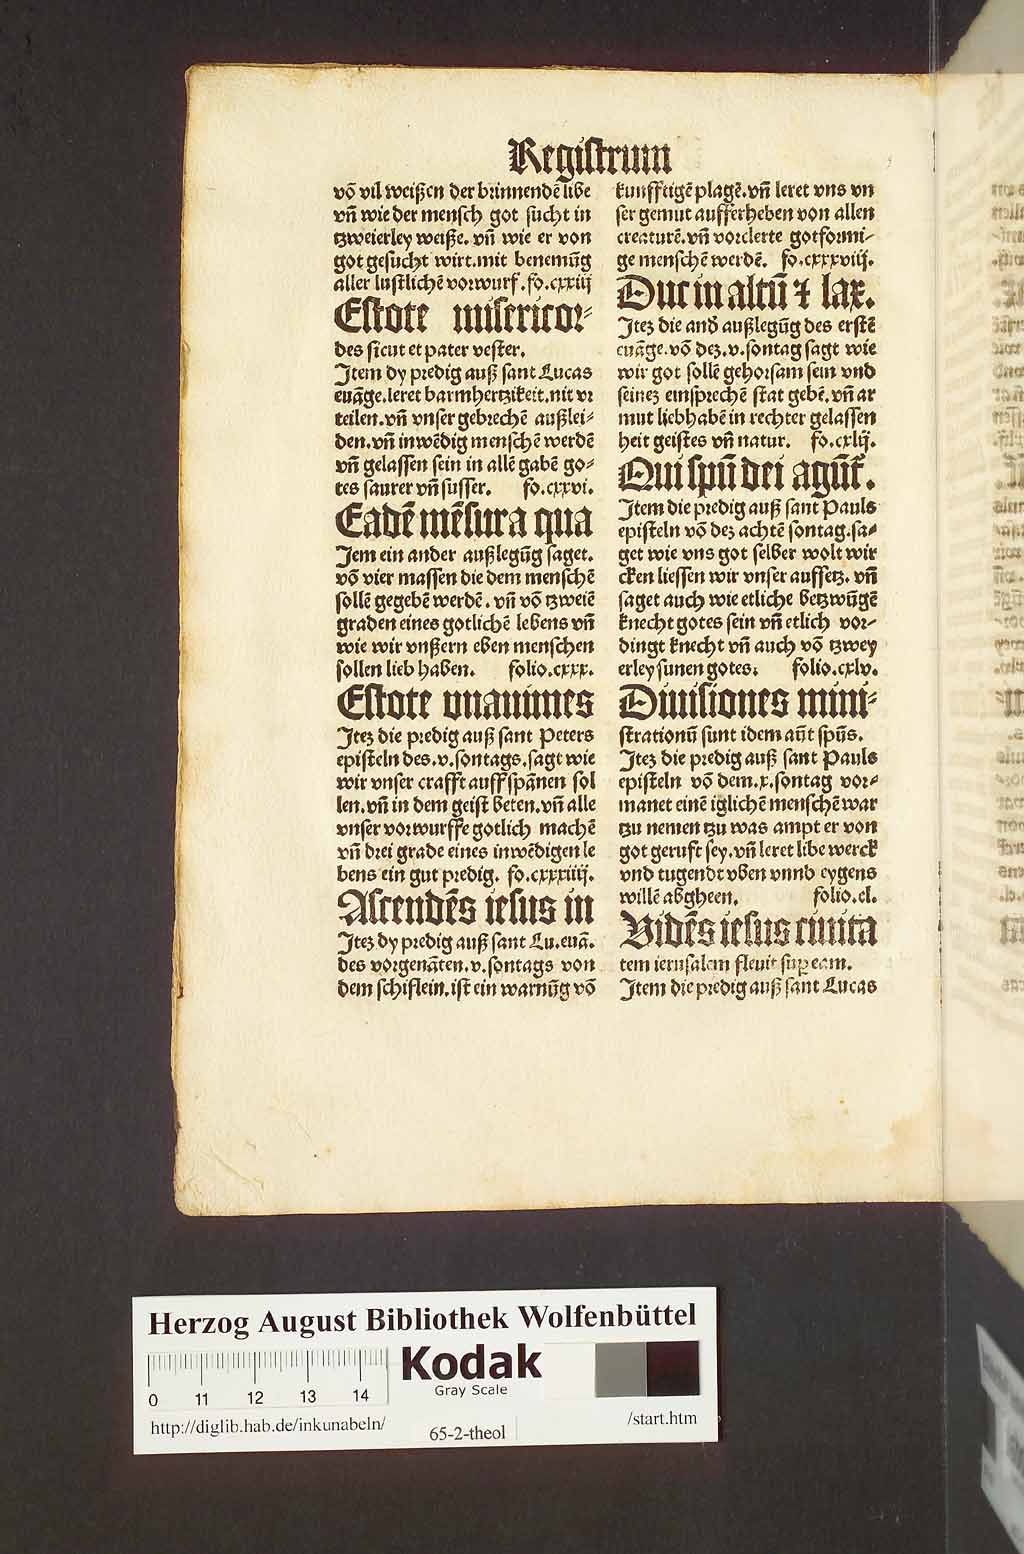 Registrum
võ vil weißen der brinnendẽ libe
vñ wie der mensch got sucht in
tzweierley weiße. vñ wie er von
got gesucht wirt. mit benemũg
aller lustlichẽ vorwurf. fo. cxxiij
Estote misericor⸗
des sicut et pater vester.
Item dy predig auß sant Lucas
euãge. leret barmhertzikeit. nit vr
teilen. vñ vnser gebrechẽ außlei⸗
den. vñ inwẽdig menschẽ werdẽ
vñ gelassen sein in allẽ gabẽ go⸗
tes saurer vñ susser. fo. cxxvi.
Eadẽ mẽsura qua
Jem ein ander außlegũg saget.
võ vier massen die dem menschẽ
sollẽ gegebẽ werdẽ. vñ võ tzweiẽ
graden eines gotlichẽ lebens vñ
wie wir vnßern eben menschen
sollen lieb haben. folio. cxxx.
Estote vnanimes
Itez die predig auß sant Peters
episteln des. v. sontags. sagt wie
wir vnser crafft auff spãnen sol
len. vñ in dem geist beten. vñ alle
vnser vorwurffe gotlich machẽ
vñ drei grade eines inwẽdigen le
bens ein gut predig. fo. cxxxiiij.
Ascendẽs iesus in
Itez dy predig auß sant Lu. euã.
des vorgenãten. v. sontags von
dem schiflein. ist ein warnũg võ
kunfftigẽ plagẽ. vñ leret vns vn
ser gemut aufferheben von allen
creaturẽ. vñ vorclerte gotformi⸗
ge menschẽ werdẽ. fo. cxxxviij.
Duc in altũ ⁊ lax.
Itez die and̕ außlegũg des erstẽ
euãge. võ dez. v. sontag sagt wie
wir got sollẽ gehorsam sein vnd
seinez einsprechẽ stat gebẽ. vñ ar
mut liebhabẽ in rechter gelassen
heit geistes vñ natur. fo. cxlij.
Qui spũ dei agũt̃.
Item die predig auß sant Pauls
episteln võ dez achtẽ sontag. sa⸗
get wie vns got selber wolt wir
cken liessen wir vnser auffsetz. vñ
saget auch wie etliche betzwũgẽ
knecht gotes sein vñ etlich vor⸗
dingt knecht vñ auch võ tzwey
erley sunen gotes. folio. cxlv.
Diuisiones mini⸗
strationũ sunt idem aũt spũs.
Itez die predig auß sant Pauls
episteln võ dem. x. sontag vor⸗
manet einẽ iglichẽ menschẽ war
tzu nemen tzu was ampt er von
got geruft sey. vñ leret libe werck
vnd tugendt vben vnnd eygens
willẽ abgheen. folio. cl.
Vidẽs iesus ciuita
tem ierusalem fleuit suꝑ eam.
Item die predig auß sant Lucas
Herzog August Bibliothek Wolfenbüttel
0 11 12 13 14
Kodak
Gray Scale
http://diglib.hab.de/inkunabeln/
65-2-theol
/start.htm